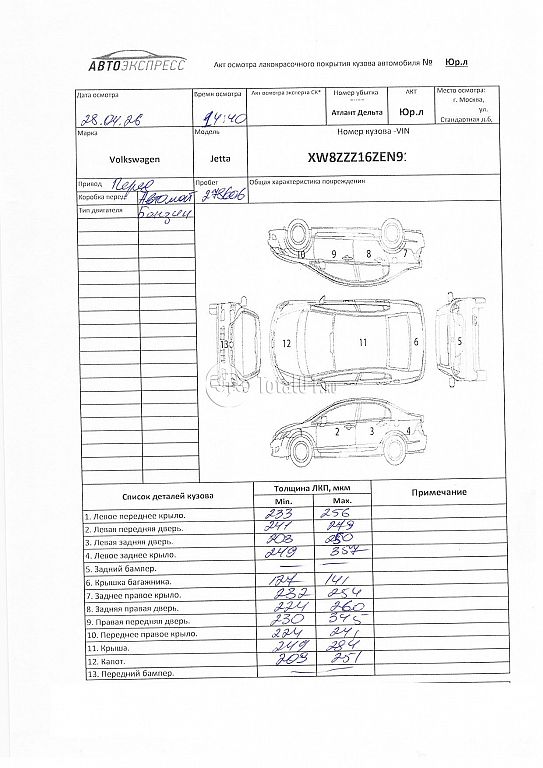 АВТОЭКСПРЕСС
Акт осмотра лакокрасочного покрытия кузова автомобиля № Юр.л
Дата осмотра Время осмотра Акт осмотра эксперта СК* Номер убытка АКТ Место осмотра:
г. Москва,
ул.
28.04.26 14:40 Атлант Дельта Юр.л Стандартная д.6,
Марка Модель Номер кузова -VIN
Volkswagen Jetta XW8ZZZ16ZEN9
Привод Перед Пробег Общая характеристика повреждений
Коробка передач Автомат
Тип двигателя Бензин
10 9 8 7
13 12 11 6 5
2 3 4
Список деталей кузова Толщина ЛКП, мкм Примечание
Min. Max.
1. Левое переднее крыло. 233 256
2. Левая передняя дверь. 241 249
3. Левая задняя дверь. 203
4. Левое заднее крыло. 249 357
5. Задний бампер. — —
6. Крышка багажника. 127 141
7. Заднее правое крыло. 232 254
8. Задняя правая дверь. 224 260
9. Правая передняя дверь. 230 345
10. Переднее правое крыло. 224 241
11. Крыша. 249 284
12. Капот. 209 251
13. Передний бампер. — —